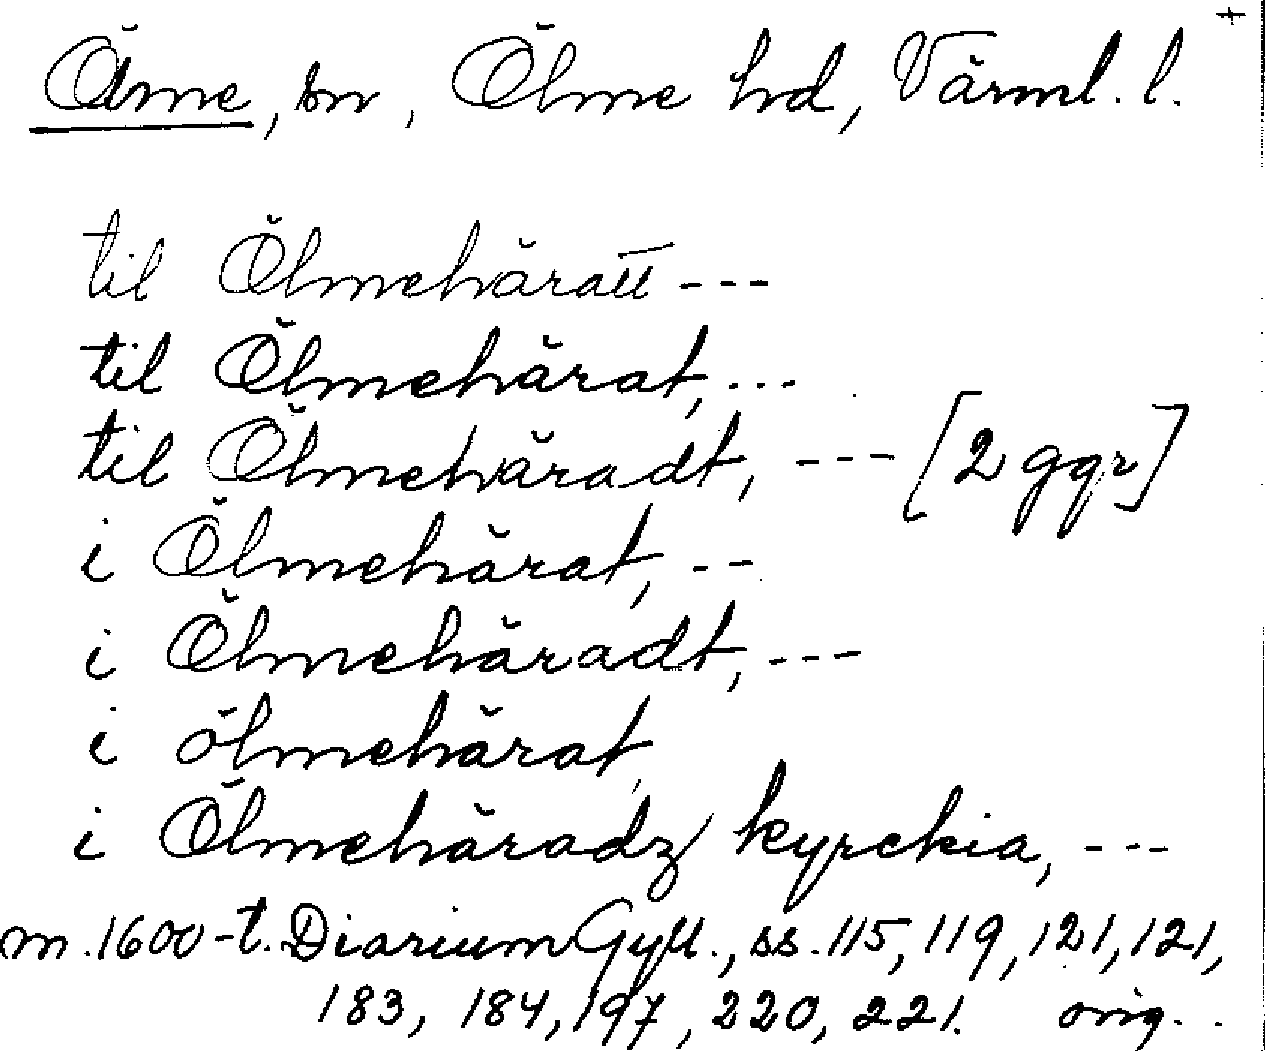 +
Ölme, sn, Ölme hd, Värml. l.
til Ölmehäratt ---
til Ölmehärat, ---
til Ölmehäradt, --- [2 ggr]
i Ölmehärat, --
i Ölmehäradt, ---
i ölmehärat,
i Ölmehäradz kyrckia, ---
m. 1600-t. Diarium Gyll., ss. 115, 119, 121, 121,
183, 184, 197, 220, 221. orig. .